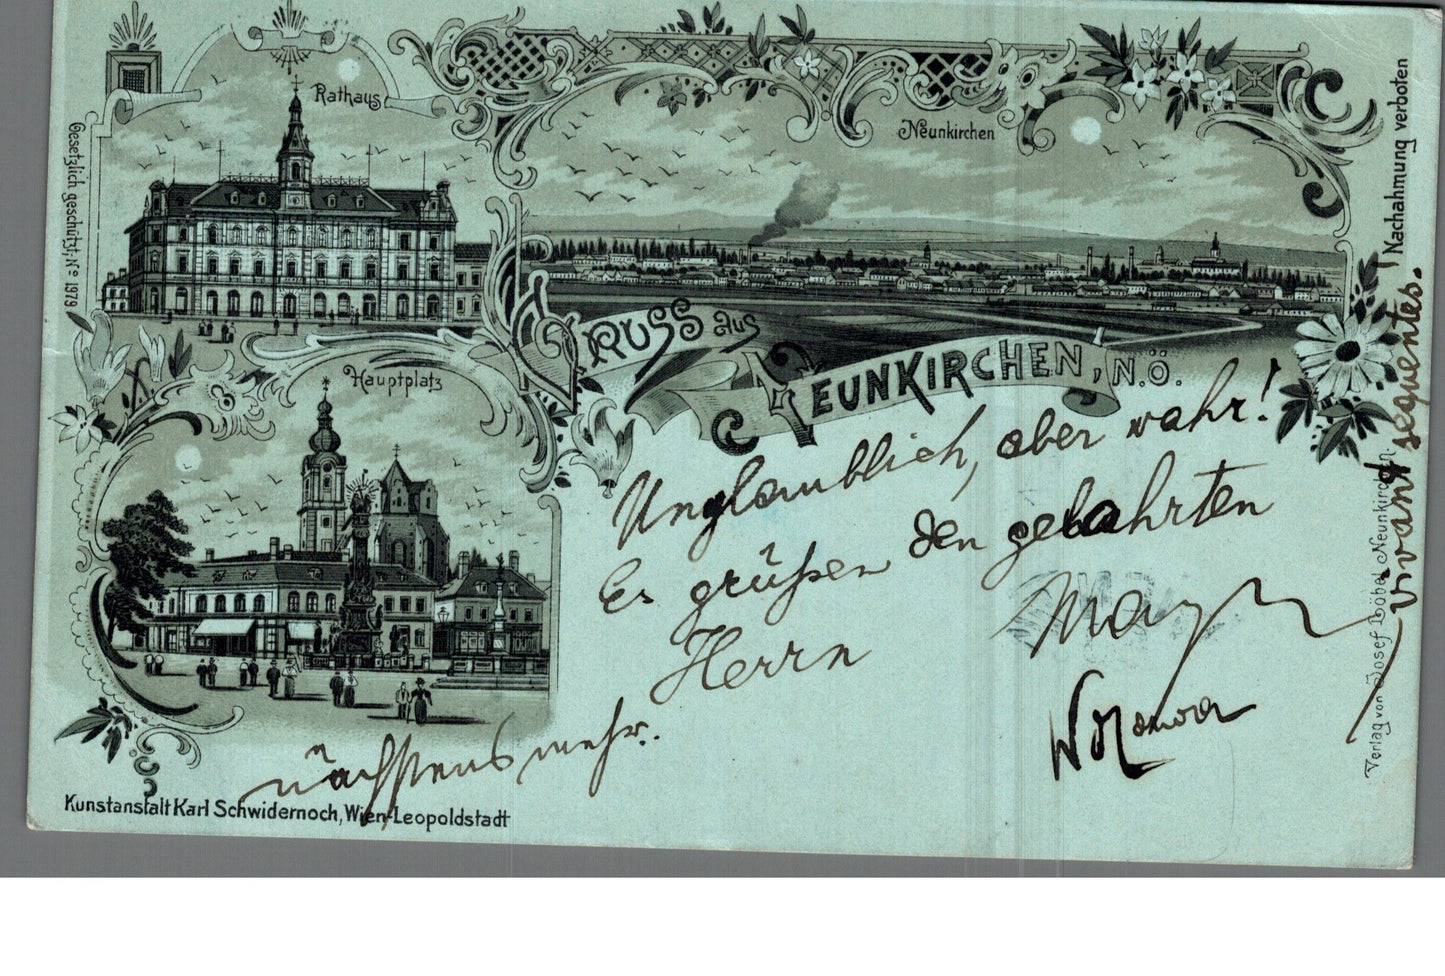 Rathaus
Neunkirchen
Gesetzlich geschützt; No 1979
Nachahmung verboten
Gruss aus
Neunkirchen, N.Ö.
Hauptplatz
Unglaublich, aber wahr!
Es grüßen den gelahrten
Herrn
nächstens mehr.
vivant sequentes.
Verlag von Josef Löbel, Neunkirchen.
Kunstanstalt Karl Schwidernoch, Wien-Leopoldstadt